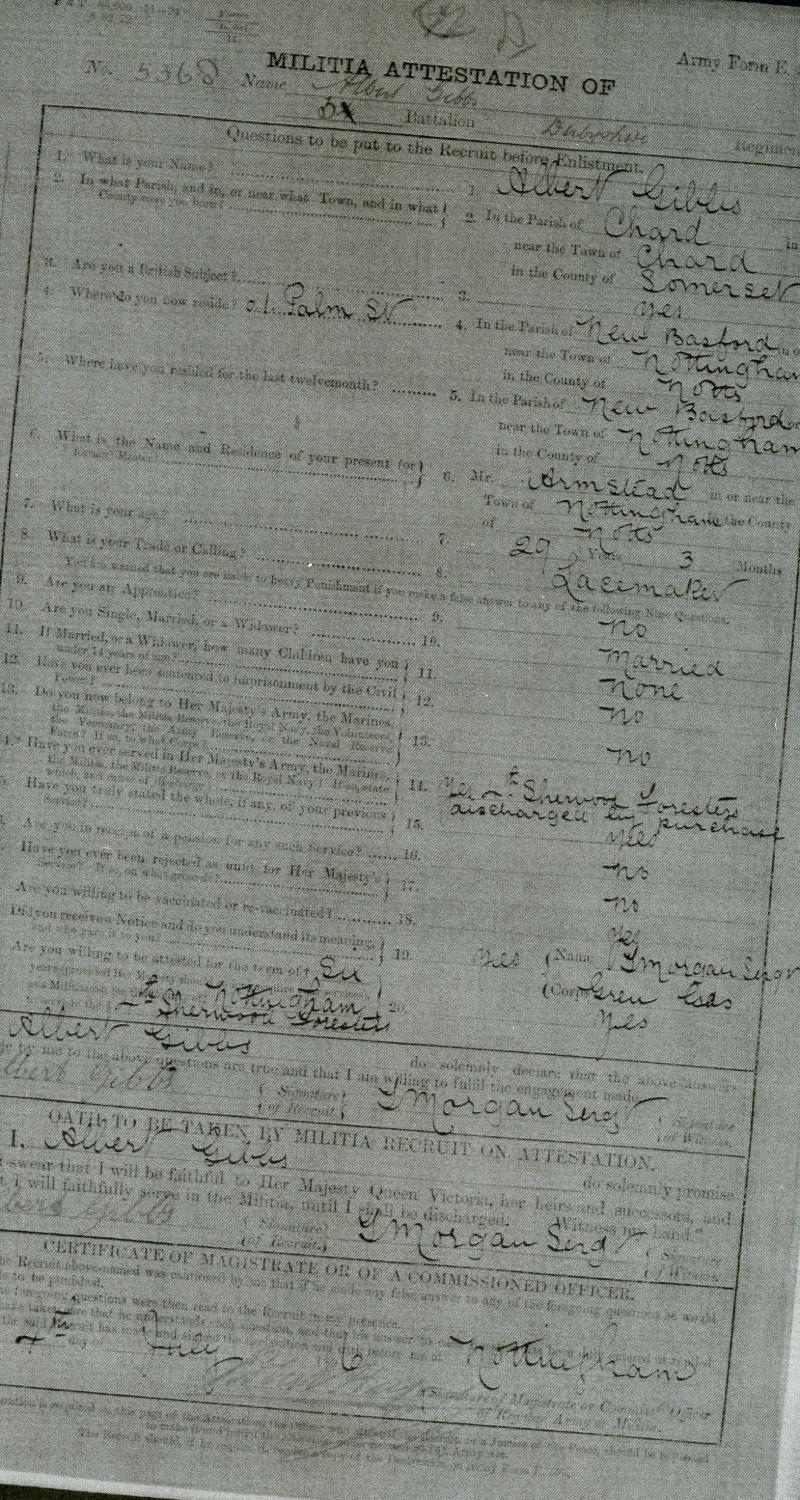 MILITIA ATTESTATION OF
Army Form E.
No. 5368 Name Albert Gibbs
Battalion Derbyshire Regiment
Questions to be put to the Recruit before Enlistment.
1. What is your Name? 1. Albert Gibbs
2. In what Parish, and in, or near what Town, and in what County were you born? 2. In the Parish of Chard in
near the Town of Chard
in the County of Somerset
3. Are you a British Subject? 3. yes
4. Where do you now reside? Palm St 4. In the Parish of New Basford in o
near the Town of Nottingham
in the County of Notts
5. Where have you resided for the last twelvemonth? 5. In the Parish of New Basford or
near the Town of Nottingham
in the County of Notts
6. What is the Name and Residence of your present (or former) Master? 6. Mr. Armstead in or near the
Town of Nottingham in the County
of Notts
7. What is your age? 7. 29 Years 3 Months
8. What is your Trade or Calling? 8. Lacemaker
You are warned that you are liable to heavy Punishment if you make a false answer to any of the following Nine Questions.
9. Are you an Apprentice? 9. no
10. Are you Single, Married, or a Widower? 10. Married
11. If Married, or a Widower, how many Children have you under 14 years of age? 11. None
12. Have you ever been sentenced to imprisonment by the Civil Power? 12. no
13. Do you now belong to Her Majesty's Army, the Marines,
the Militia, the Militia Reserve, the Royal Navy, the Volunteers,
the Yeomanry, the Army Reserve, or the Naval Reserve
Force? If so, to what Corps? 13. no
Have you ever served in Her Majesty's Army, the Marines,
the Militia, the Militia Reserve, or the Royal Navy? If so, state
which, and cause of discharge 14. Yes Sherwood Foresters
discharged by purchase
Have you truly stated the whole, if any, of your previous Service? 15. yes
Are you in receipt of a pension for any such Service? 16. no
Have you ever been rejected as unfit for Her Majesty's Service? If so, on what grounds? 17. no
Are you willing to be vaccinated or re-vaccinated? 18. yes
Did you receive a Notice and do you understand its meaning,
and who gave it to you? 19. yes Name Morgan Sergt
Corps Gren Gds
Are you willing to be attested for the term of Six
Nottingham
Sherwood Foresters 20. yes
Albert Gibbs do solemnly declare that the above answers
by me to the above questions are true and that I am willing to fulfil the engagement made
Albert Gibbs Signature of Recruit. Morgan Sergt Signature of Witness.
OATH TO BE TAKEN BY MILITIA RECRUIT ON ATTESTATION.
I, Albert Gibbs do solemnly promise
swear that I will be faithful to Her Majesty Queen Victoria, her heirs and successors, and
I will faithfully serve in the Militia, until I shall be discharged. Witness my hand.
Albert Gibbs Signature of Recruit. Morgan Sergt Signature of Witness.
CERTIFICATE OF MAGISTRATE OR OF A COMMISSIONED OFFICER.
The Recruit above-named was cautioned by me that if he made any false answer to any of the foregoing questions he would
be to be punished.
foregoing questions were then read to the Recruit in my presence.
Nottingham
4th day of July
Signature of Magistrate or Commiss. Officer
of Regular Army or Militia.